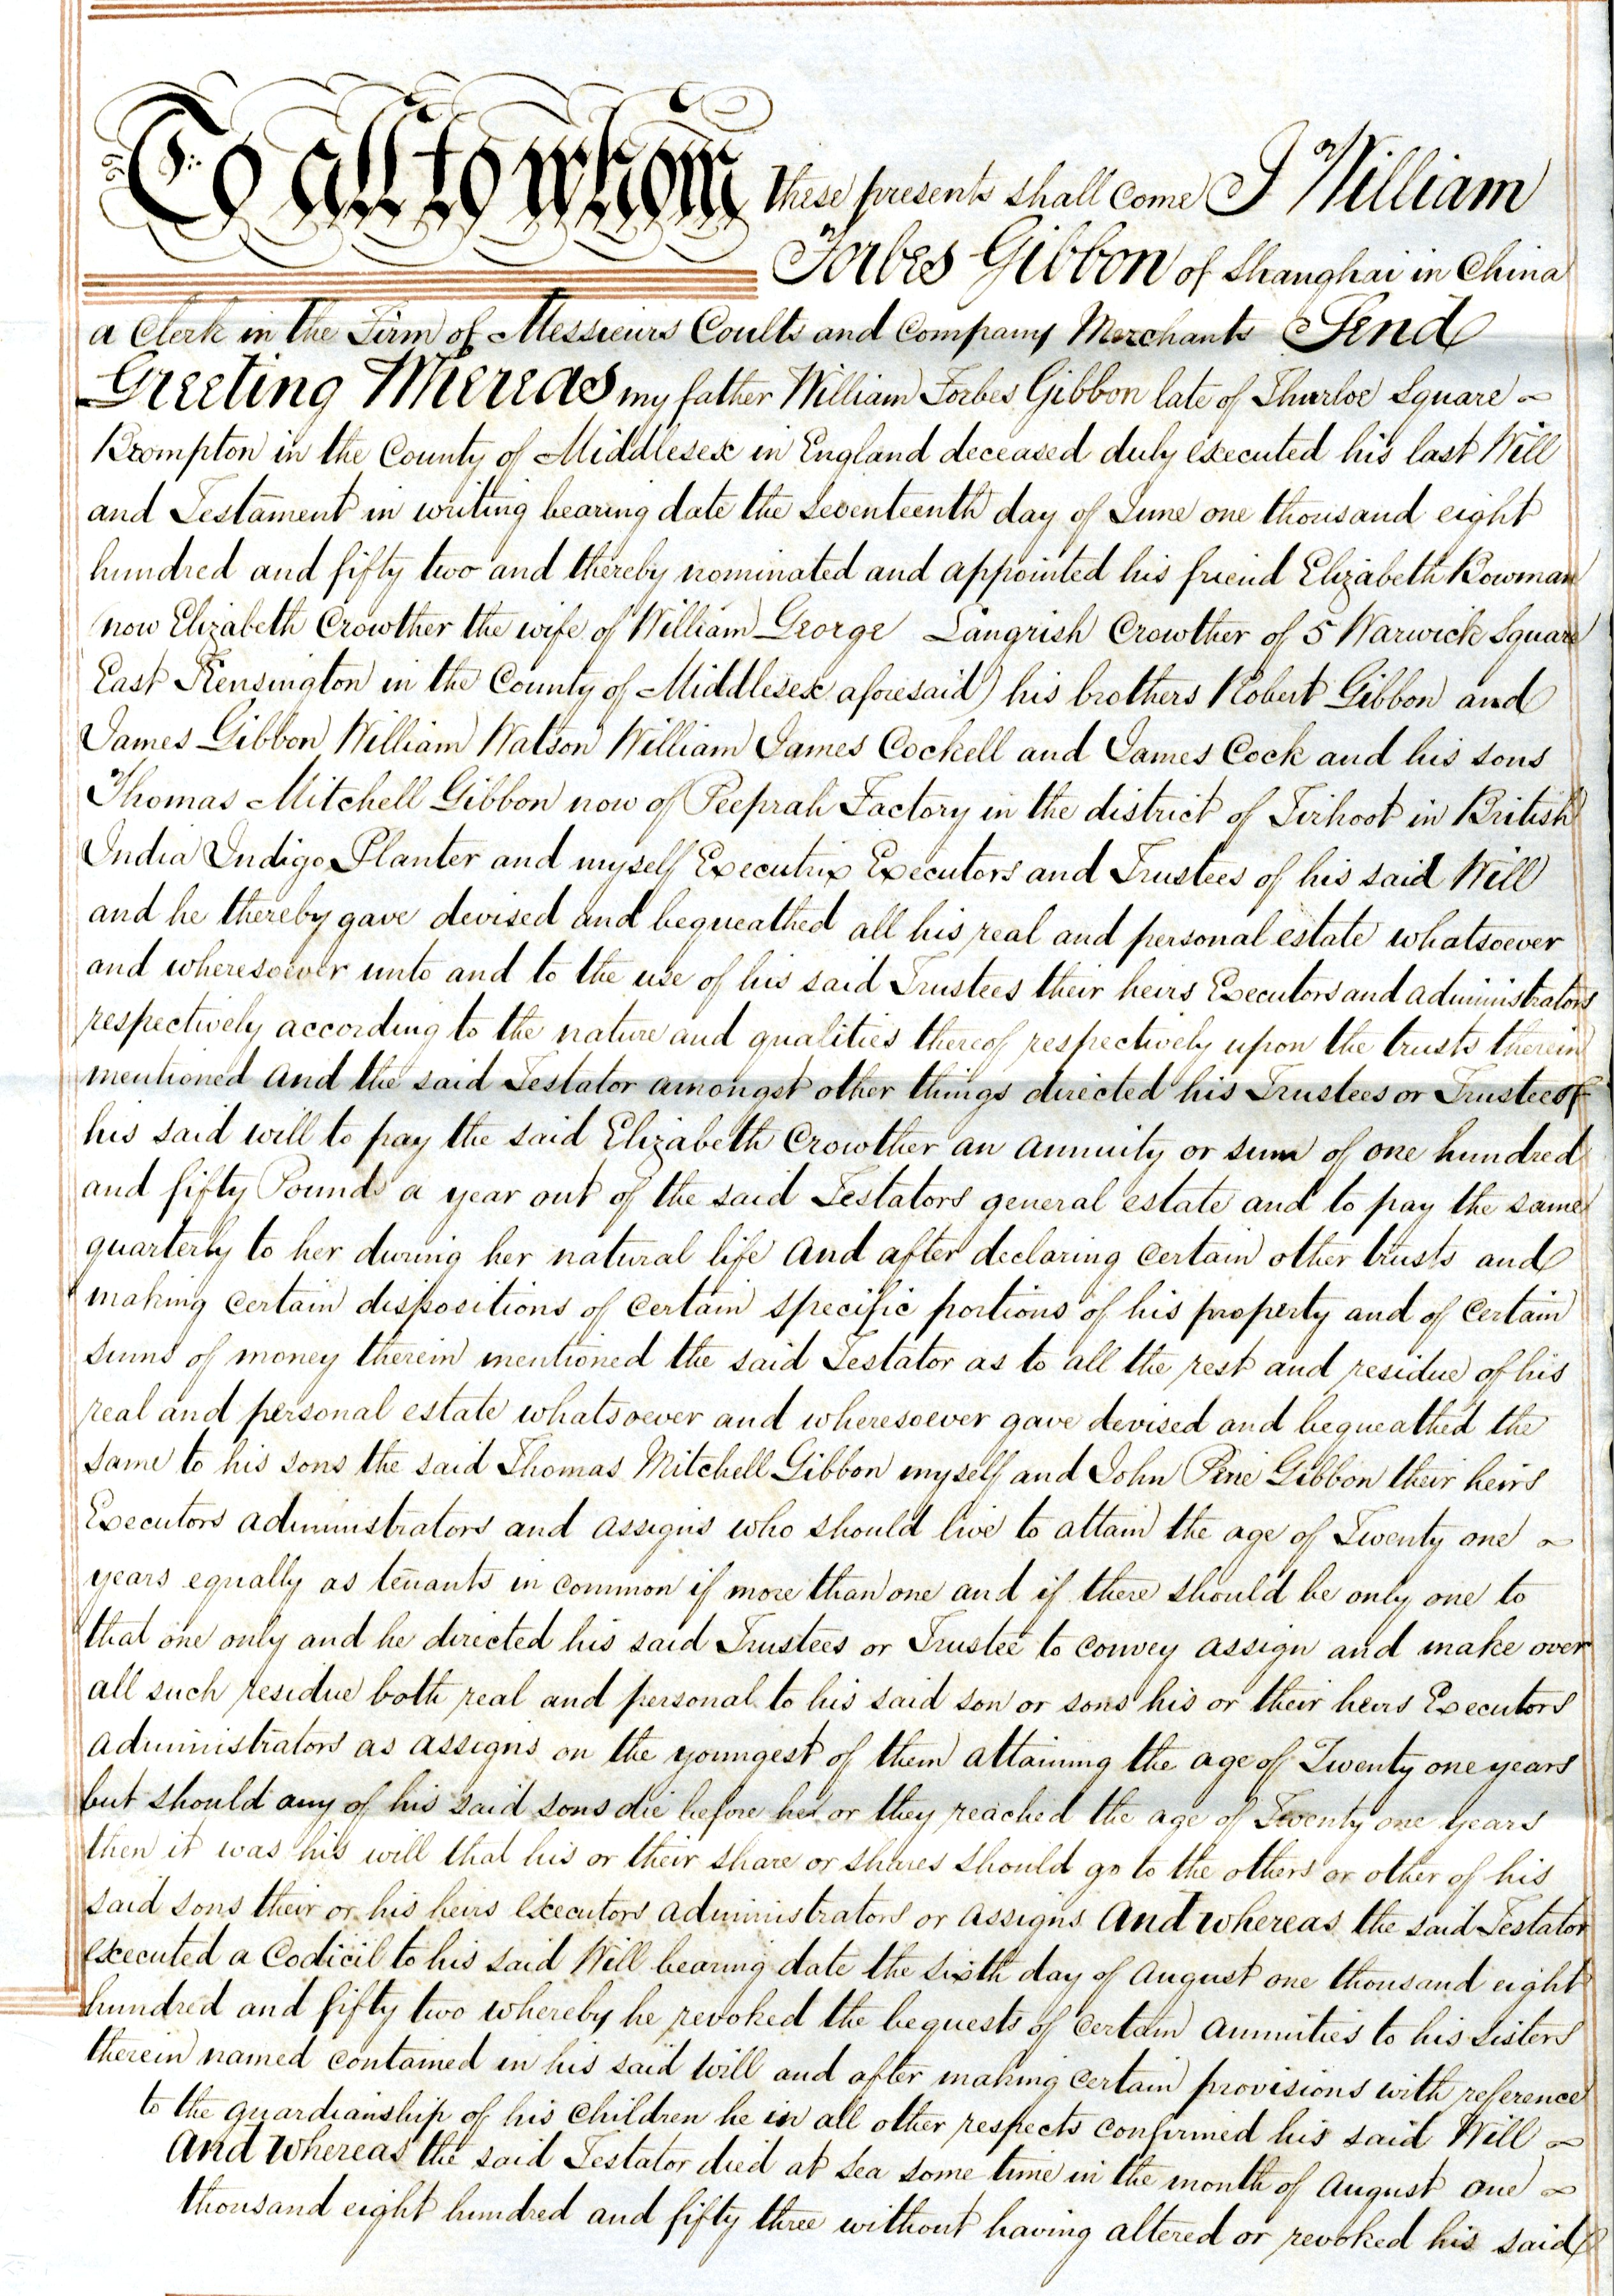 To all to whom these presents shall come I William
Forbes Gibbon of Shanghai in China
a Clerk in the Firm of Messieurs Coults and Company Merchants Send
Greeting Whereas my father William Forbes Gibbon late of Thurloe Square
Brompton in the County of Middlesex in England deceased duly executed his last Will
and Testament in writing bearing date the Seventeenth day of June one thousand eight
hundred and fifty two and thereby nominated and appointed his friend Elizabeth Bowman
(now Elizabeth Crowther the wife of William George Langrish Crowther of 5 Warwick Square
East Kensington in the County of Middlesex aforesaid) his brothers Robert Gibbon and
James Gibbon William Watson William James Cockell and James Cock and his sons
Thomas Mitchell Gibbon now of Peeprah Factory in the district of Tirhoot in British
India Indigo Planter and myself Executrix Executors and Trustees of his said Will
and he thereby gave devised and bequeathed all his real and personal estate whatsoever
and wheresoever unto and to the use of his said Trustees their heirs Executors and administrators
respectively according to the nature and qualities thereof respectively upon the trusts therein
mentioned and the said Testator amongst other things directed his Trustees or Trustee of
his said will to pay the said Elizabeth Crowther an annuity or sum of one hundred
and fifty Pounds a year out of the said Testators general estate and to pay the same
quarterly to her during her natural life and after declaring certain other trusts and
making certain dispositions of certain specific portions of his property and of certain
sums of money therein mentioned the said Testator as to all the rest and residue of his
real and personal estate whatsoever and wheresoever gave devised and bequeathed the
same to his sons the said Thomas Mitchell Gibbon myself and John Pine Gibbon their heirs
Executors administrators and assigns who should live to attain the age of Twenty one
years equally as tenants in common if more than one and if there should be only one to
that one only and he directed his said Trustees or Trustee to convey assign and make over
all such residue both real and personal to his said son or sons his or their heirs Executors
administrators as assigns on the youngest of them attaining the age of Twenty one years
but should any of his said sons die before he or they reached the age of Twenty one years
then it was his will that his or their share or shares should go to the others or other of his
said sons their or his heirs executors administrators or assigns And whereas the said Testator
executed a Codicil to his said Will bearing date the sixth day of August one thousand eight
hundred and fifty two whereby he revoked the bequests of certain annuities to his sisters
therein named contained in his said will and after making certain provisions with reference
to the guardianship of his children he in all other respects confirmed his said Will
And whereas the said Testator died at sea some time in the month of August one
thousand eight hundred and fifty three without having altered or revoked his said